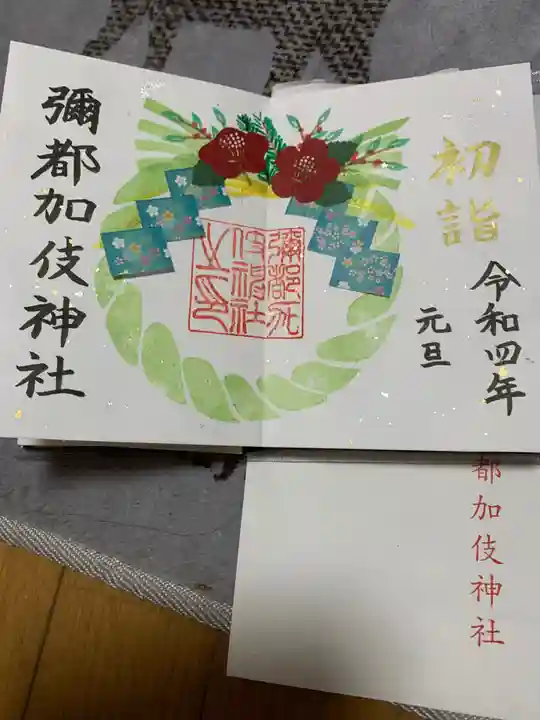 初詣
令和四年
元旦
彌都加伎神社
彌都加
伎神社
之印
都加伎神社